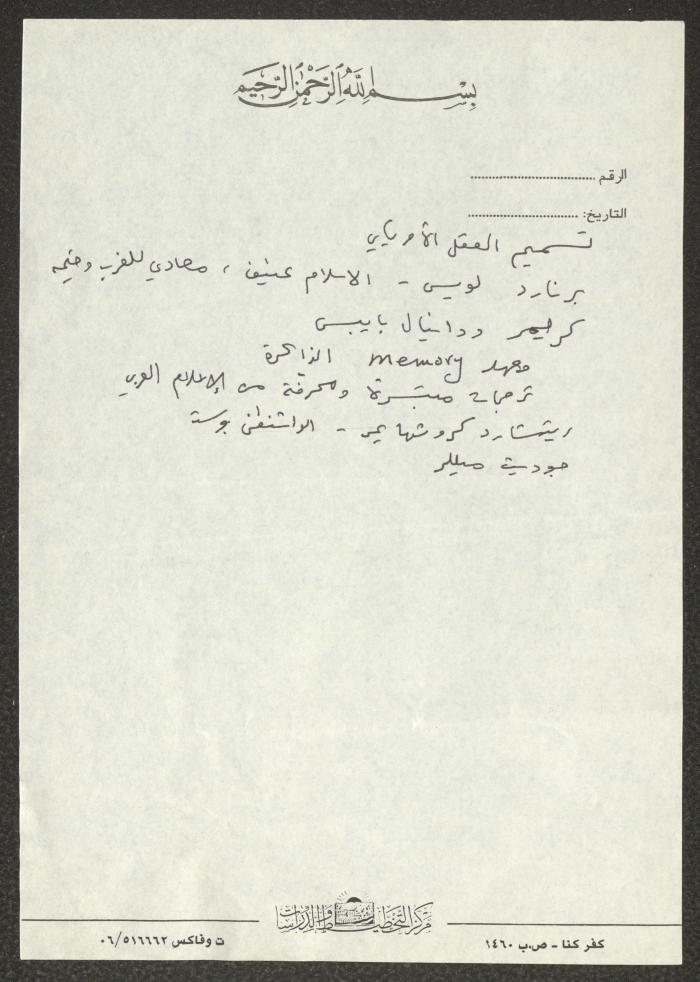 بسم الله الرحمن الرحيم
الرقم ..............................
التاريخ: ..............................
تسميم العقل الأوربايي
برنارد لويس - الاسلام عنيف ، معادي للغرب وقيمه
كريمر ودانيال بايبس
معهد memory الذاكرة
ترجمات مبتسرة ومحرفة من الإعلام العربي
ريتشارد كروثهايمر - الواشنطن بوست
جوديث ميللر
مركز التخطيط والدراسات
كفر كنا - ص.ب ١٤٦٠
ت وفاكس ٠٦/٥١٦٦٦٢